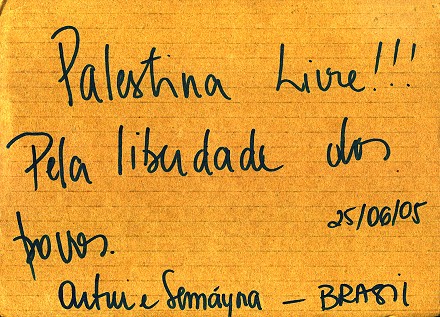 Palestina Livre!!!
Pela liberdade dos
povos.
25/06/05
Artur e Semáyna – BRASIL